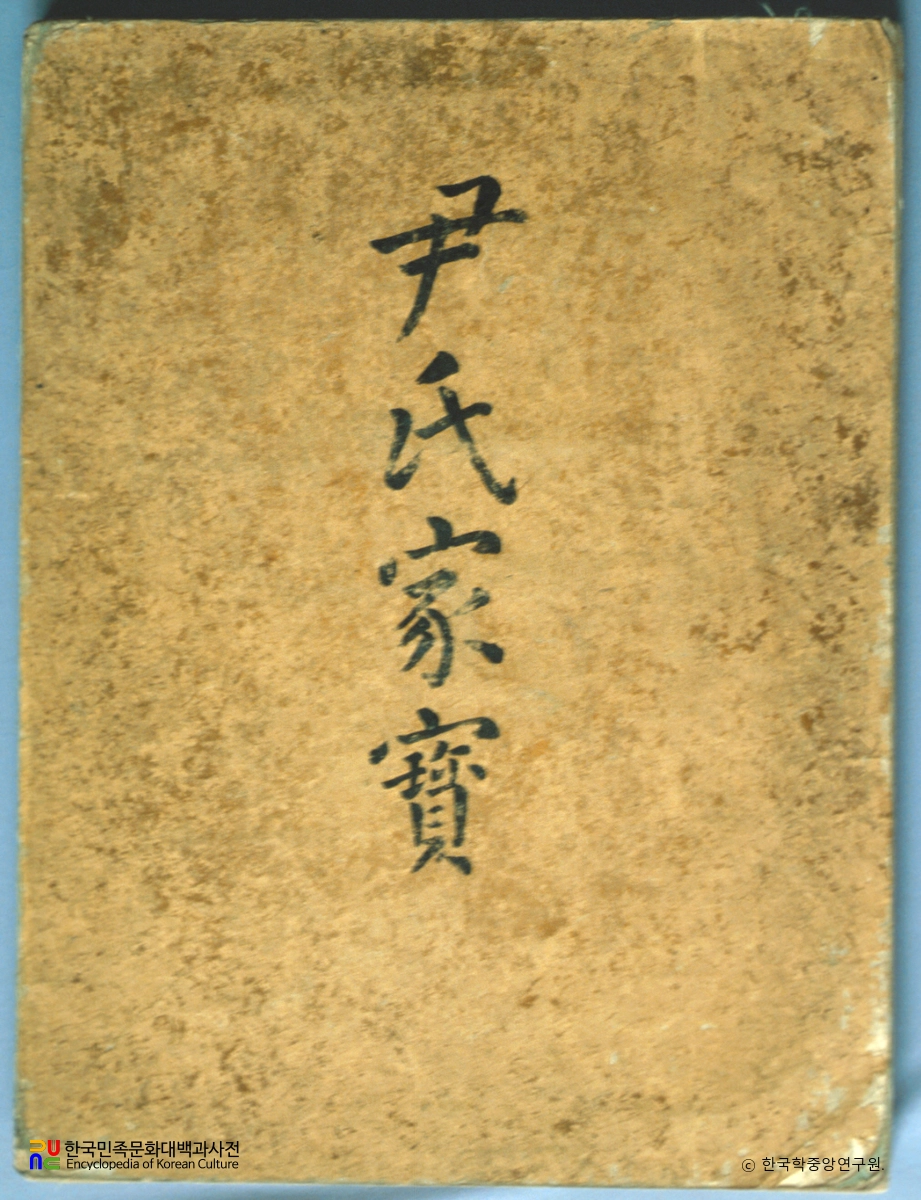 尹氏家寶
한국민족문화대백과사전
Encyclopedia of Korean Culture
ⓒ 한국학중앙연구원.